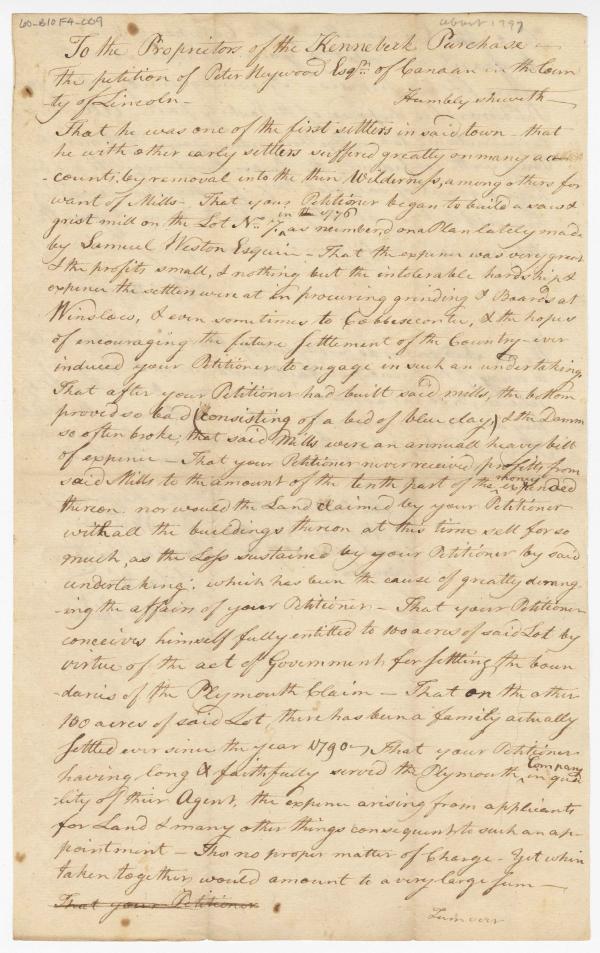 60-B10F4-009
about 1797
To the Proprietors of the Kennebeck Purchase —
The petition of Peter Heywood Esqr. of Canaan in the Coun
-ty of Lincoln — Humbly sheweth —
That he was one of the first settlers in said town — that
he with other early settlers suffered greatly on many ac-
-counts, by removal into the then Wilderness, among others for
want of Mills — That your Petitioner began to build a saw &
grist mill on the Lot No. 7, in the 1776 as number'd on a Plan lately made
by Samuel Weston Esquire — That the expence was very great
& the profits small, & nothing but the intolerable hardship &
expence the settlers were at in procuring grinding & Boards at
Winslow, & even sometimes to Cobbeseconte, & the hopes
of encouraging the future settlement of the Country — ever
induced your Petitioner to engage in such an undertaking.
That after your Petitioner had built said mills, the bottom
proved so bad (consisting of a bed of blue clay) & the Damm
so often broke, that said Mills were an annuall heavy bill
of expence — That your Petitioner never received profitts from
said Mills to the amount of the tenth part of the money expended
thereon nor would the Land claimed by your Petitioner
with all the buildings thereon at this time sell for so
much, as the Loss sustained by your Petitioner by said
undertaking; which has been the cause of greatly derang-
-ing the affairs of your Petitioner — That your Petitioner
conceives himself fully entitled to 100 acres of said Lot by
virtue of the act of Government for settling the boun
daries of the Plymouth Claim — That on the other
100 acres of said Lot there has been a family actually
settled ever since the year 1790 — That your Petitioner
having long & faithfully served the Plymouth Company in qua
-lity of their Agent, the expence arising from applicants
for Land & many other things consequent to such an ap-
pointment — Tho no proper matter of Charge — Yet when
taken together would amount to a very large sum —
That your Petitioner
Turn over